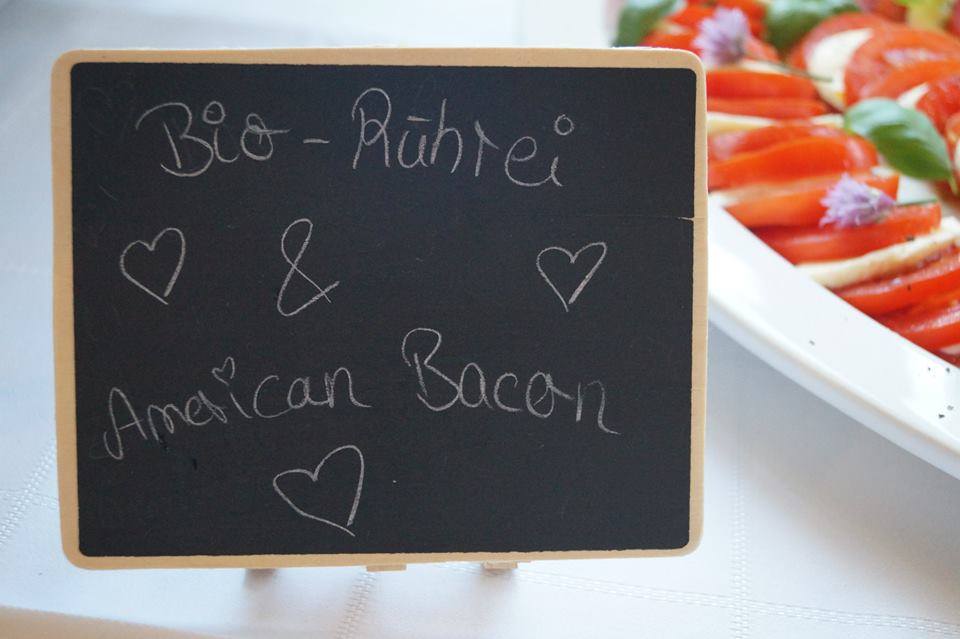 Bio - Rührei
&
American Bacon